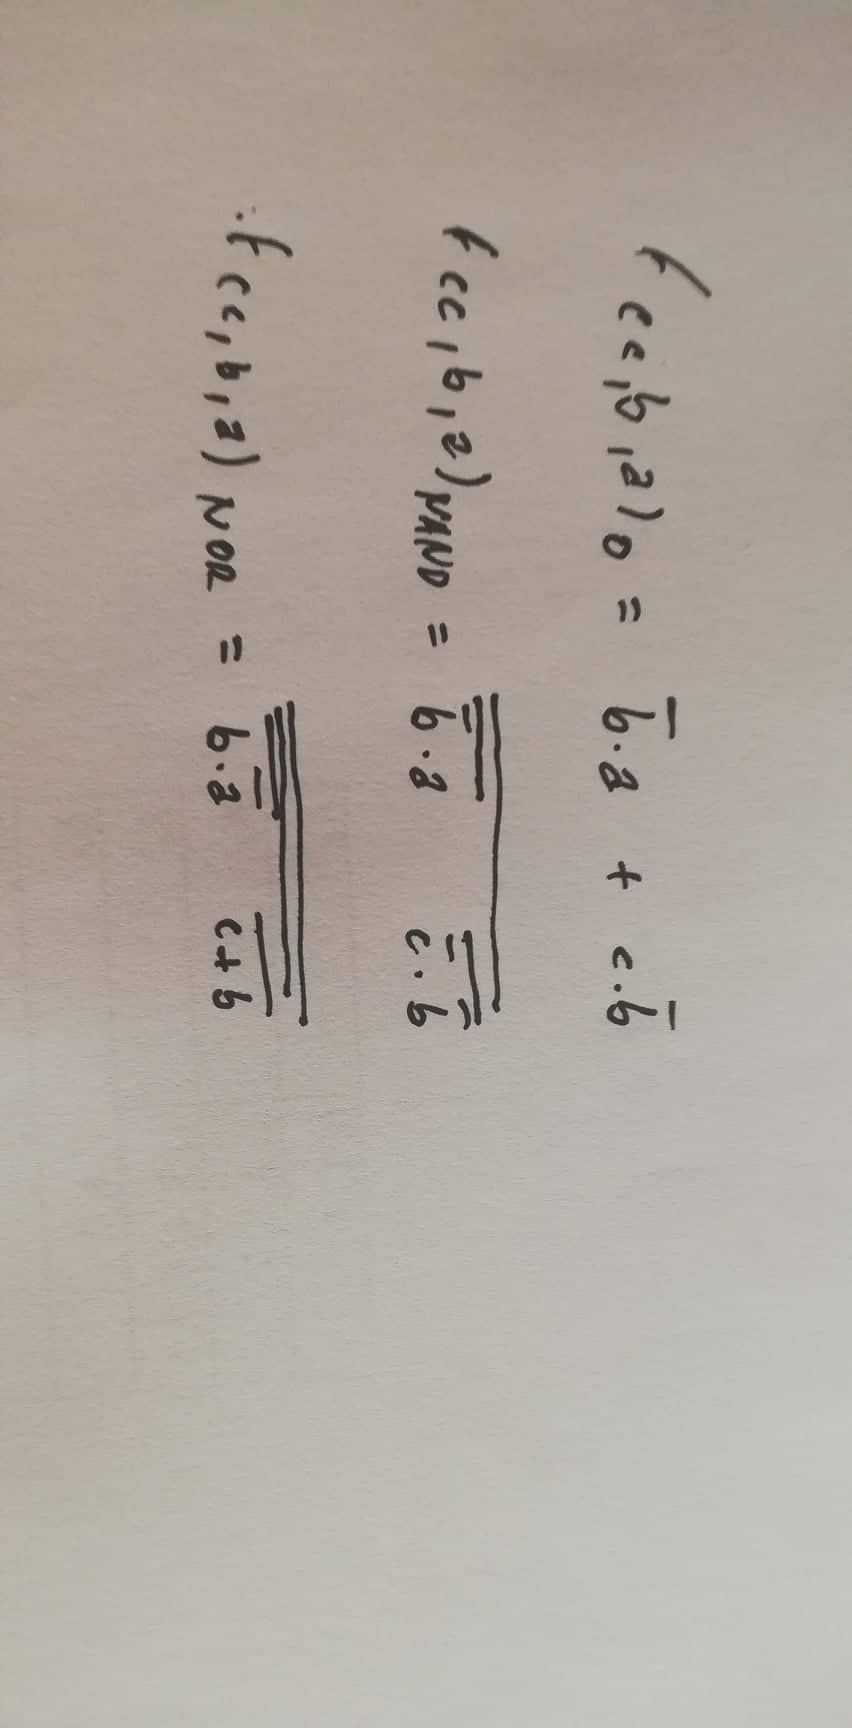 f(c,b,a)₀ = b̅·a + c·b̅
f(c,b,a)NAND = b̅·a c̅·b̅
f(c,b,a) NOR = b·a̅ c+b